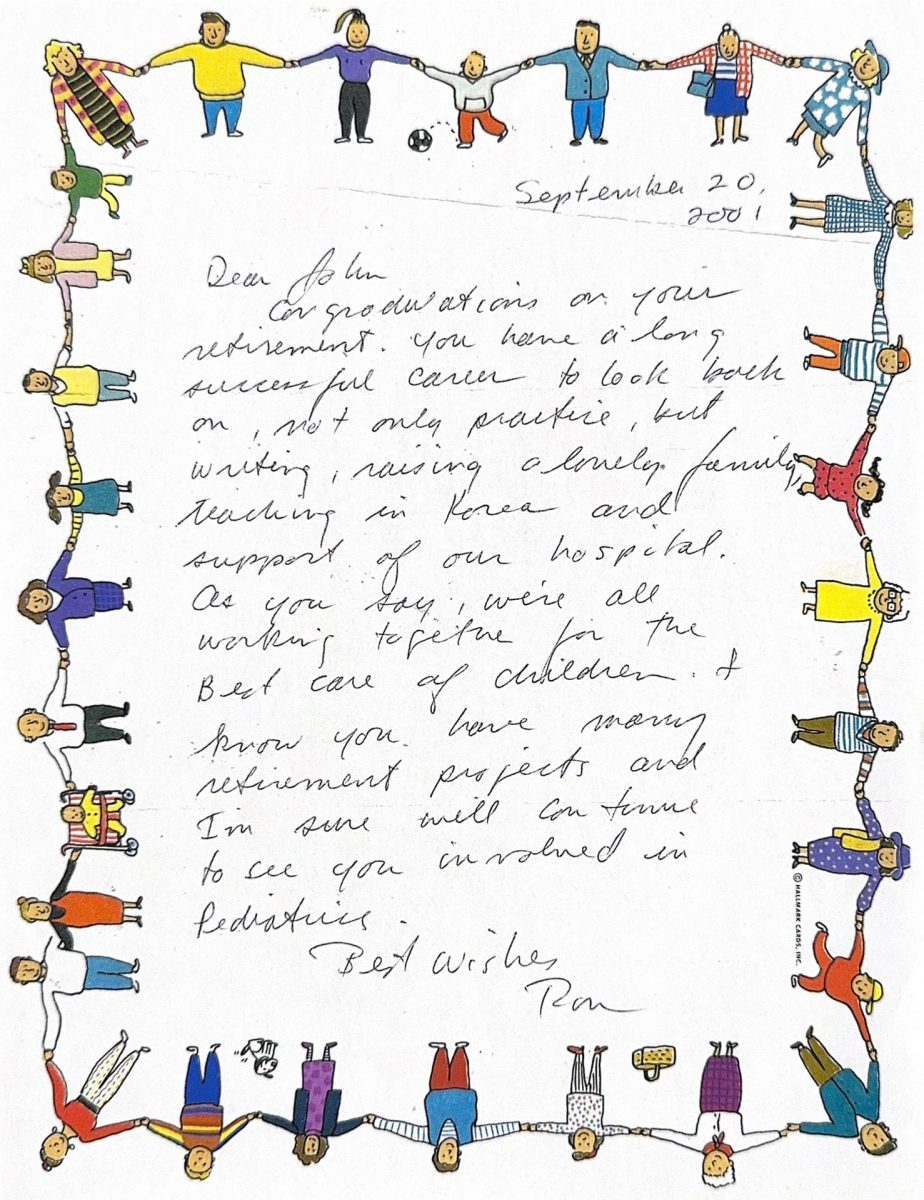 September 20,
2001
Dear John
Congradulations on your
retirement. You have a long
successful career to look back
on, not only practice, but
writing, raising a lovely family,
teaching in Korea and
support of our hospital.
As you say, we're all
working togethe for the
Best care of children. I
know you have many
retirement projects and
I'm sure will continue
to see you involved in
Pediatrics.
Best Wishes
Ron
© HALLMARK CARDS, INC.